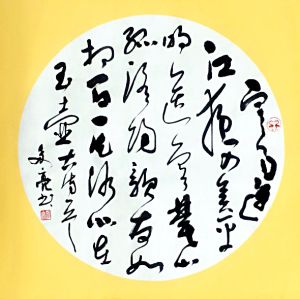 寒雨連
江夜入吴平
明送客楚山
孤洛陽親友如
相问一片冰心在
玉壺古诗
亮书